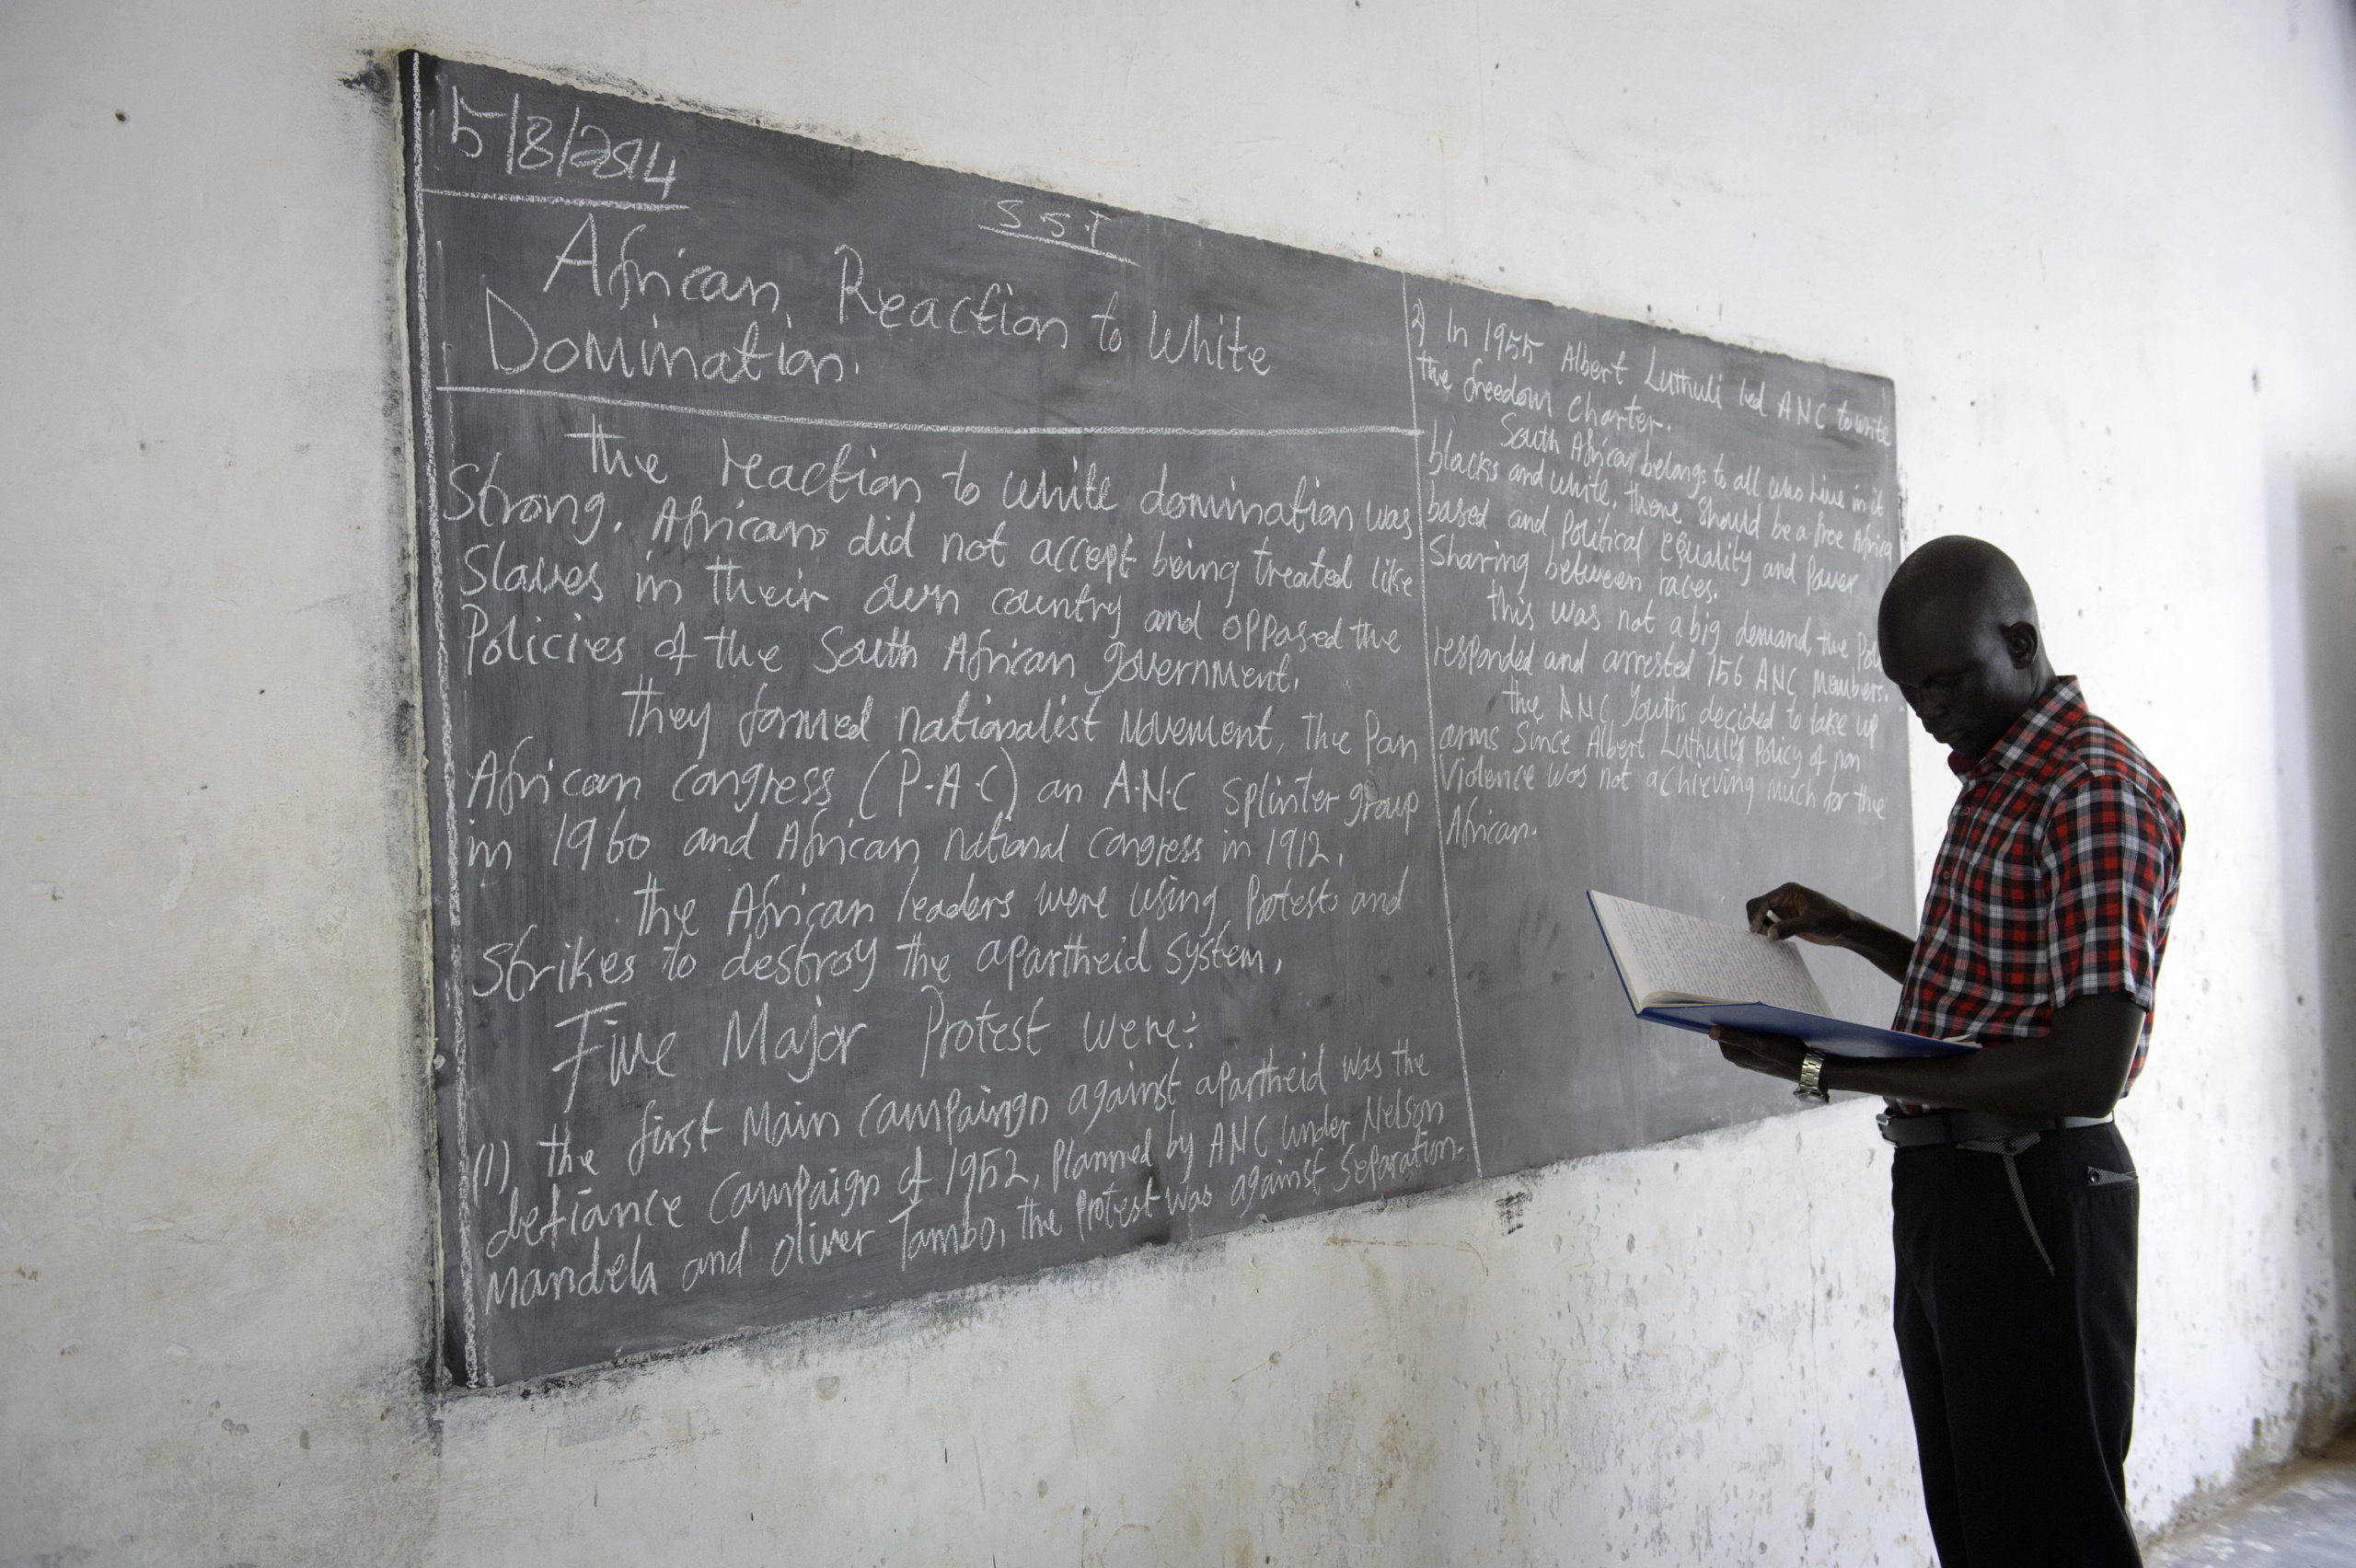 5/8/2014
S.S.T
African Reaction to White
Domination.
the reaction to white domination was
Strong. Africans did not accept being treated like
Slaves in their own country and opposed the
Policies of the South African government.
they formed nationalist Movement, The Pan
African congress (P.A.C) an A.N.C splinter group
in 1960 and African national congress in 1912.
the African leaders were using Protests and
strikes to destroy the apartheid system.
Five Major Protest were:
(1) the first Main campaingn against apartheid was the
defiance campaign of 1952, planned by ANC under Nelson
Mandela and oliver Tambo, the protest was against separation.
2) In 1955 Albert Luthuli led ANC to write
the freedom charter.
South African belongs to all who live in it
blacks and white, there should be a free Africa
based and political equality and Power
Sharing between races.
this was not a big demand, the
responded and arrested 156 ANC Members.
the ANC Youths decided to take up
arms Since Albert Luthuli's policy of non
Violence was not achieving much for the
African.